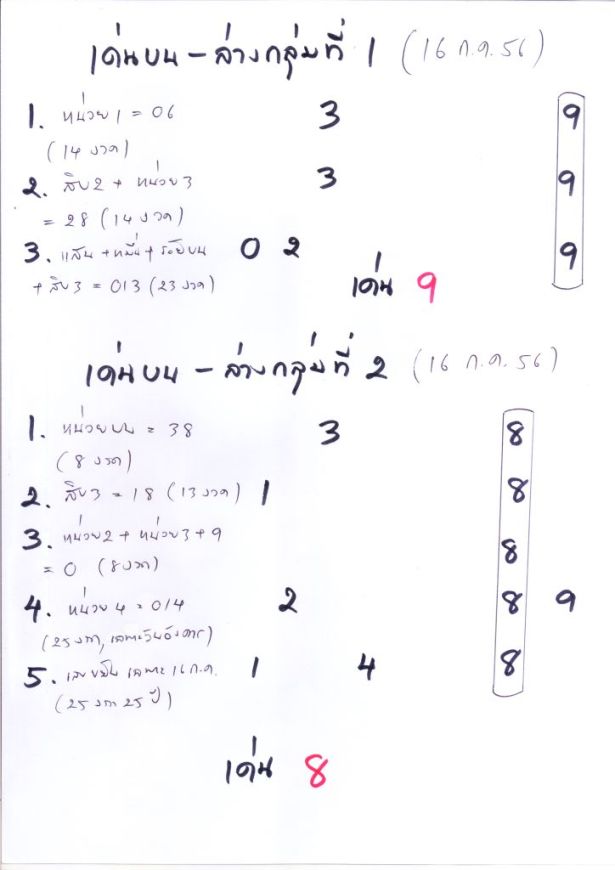 เด่นบน - ล่างกลุ่มที่ 1 (16 ก.ค. 56)
1. หน่วย 1 = 06 3 9
(14 งวด)
2. สิบ2 + หน่วย3 3 9
= 28 (14 งวด)
3. แสน + หมื่น + ร้อยบน 0 2 9
+ สิบ3 = 013 (23 งวด)
เด่น 9
เด่นบน - ล่างกลุ่มที่ 2 (16 ก.ค. 56)
1. หน่วยบน = 38 3 8
(8 งวด)
2. สิบ3 = 18 (13 งวด) 1 8
3. หน่วย2 + หน่วย3 + 9 8
= 0 (8 งวด)
4. หน่วย 4 = 014 2 8 9
(25 งวด, เฉพาะวันอังคาร)
5. เฉพาะ 16 ก.ค. 1 4 8
(25 งวด 25 ปี)
เด่น 8